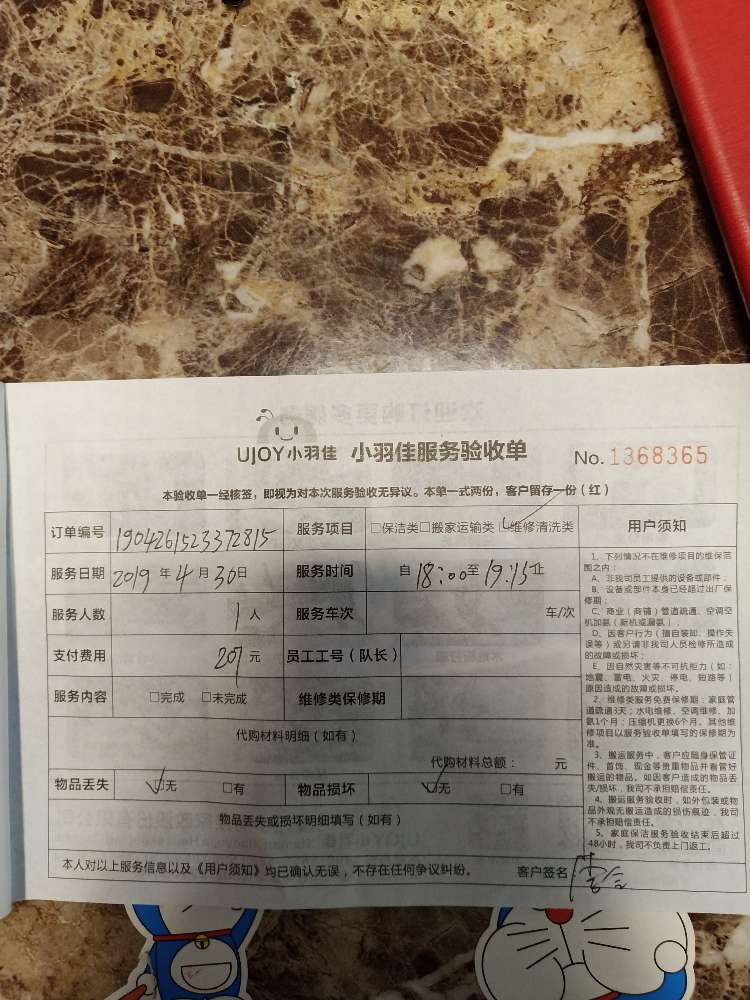 UJOY小羽佳 小羽佳服务验收单 No. 1368365
本验收单一经核签，即视为对本次服务验收无异议。本单一式两份，客户留存一份（红）
订单编号 1904261523372815 服务项目 □保洁类□搬家运输类□维修清洗类
服务日期 2019年4月30日 服务时间 自18:00至19:15止
服务人数 1人 服务车次 车/次
支付费用 207元 员工工号（队长）
服务内容 □完成 □未完成 维修类保修期
代购材料明细（如有）
代购材料总额： 元
物品丢失 □无 □有 物品损坏 □无 □有
物品丢失或损坏明细填写（如有）
本人对以上服务信息以及《用户须知》均已确认无误，不存在任何争议纠纷。 客户签名
用户须知
1、下列情况不在维修项目的维保范
围之内：
A、非我司员工提供的设备或部件；
B、设备或部件本身已经超过出厂保
修期；
C、商业（商铺）管道疏通、空调空
机加氨（新机或漏氨）；
D、因客户行为（擅自装卸、操作失
误等）或另请非我司人员检修所造成
的故障或损坏；
E、因自然灾害等不可抗拒力（如：
地震、雷电、火灾、停电、短路等）
原因造成的故障或损坏。
2、维修类服务免费保修期：家庭管
道疏通3天；水电维修、空调维修、加
氨1个月；压缩机更换6个月。其他维
修项目以服务验收单填写的保修期为
准。
3、搬运服务中，客户应随身保管证
件、首饰、现金等贵重物品并看管好
搬运的物品。如因客户造成的物品丢
失/损坏，我司不承担赔偿责任。
4、搬运服务验收时，如外包装或物
品外观无搬运造成的损伤痕迹，我司
不承担赔偿责任。
5、家庭保洁服务验收结束后超过
48小时，我司不负责上门返工。